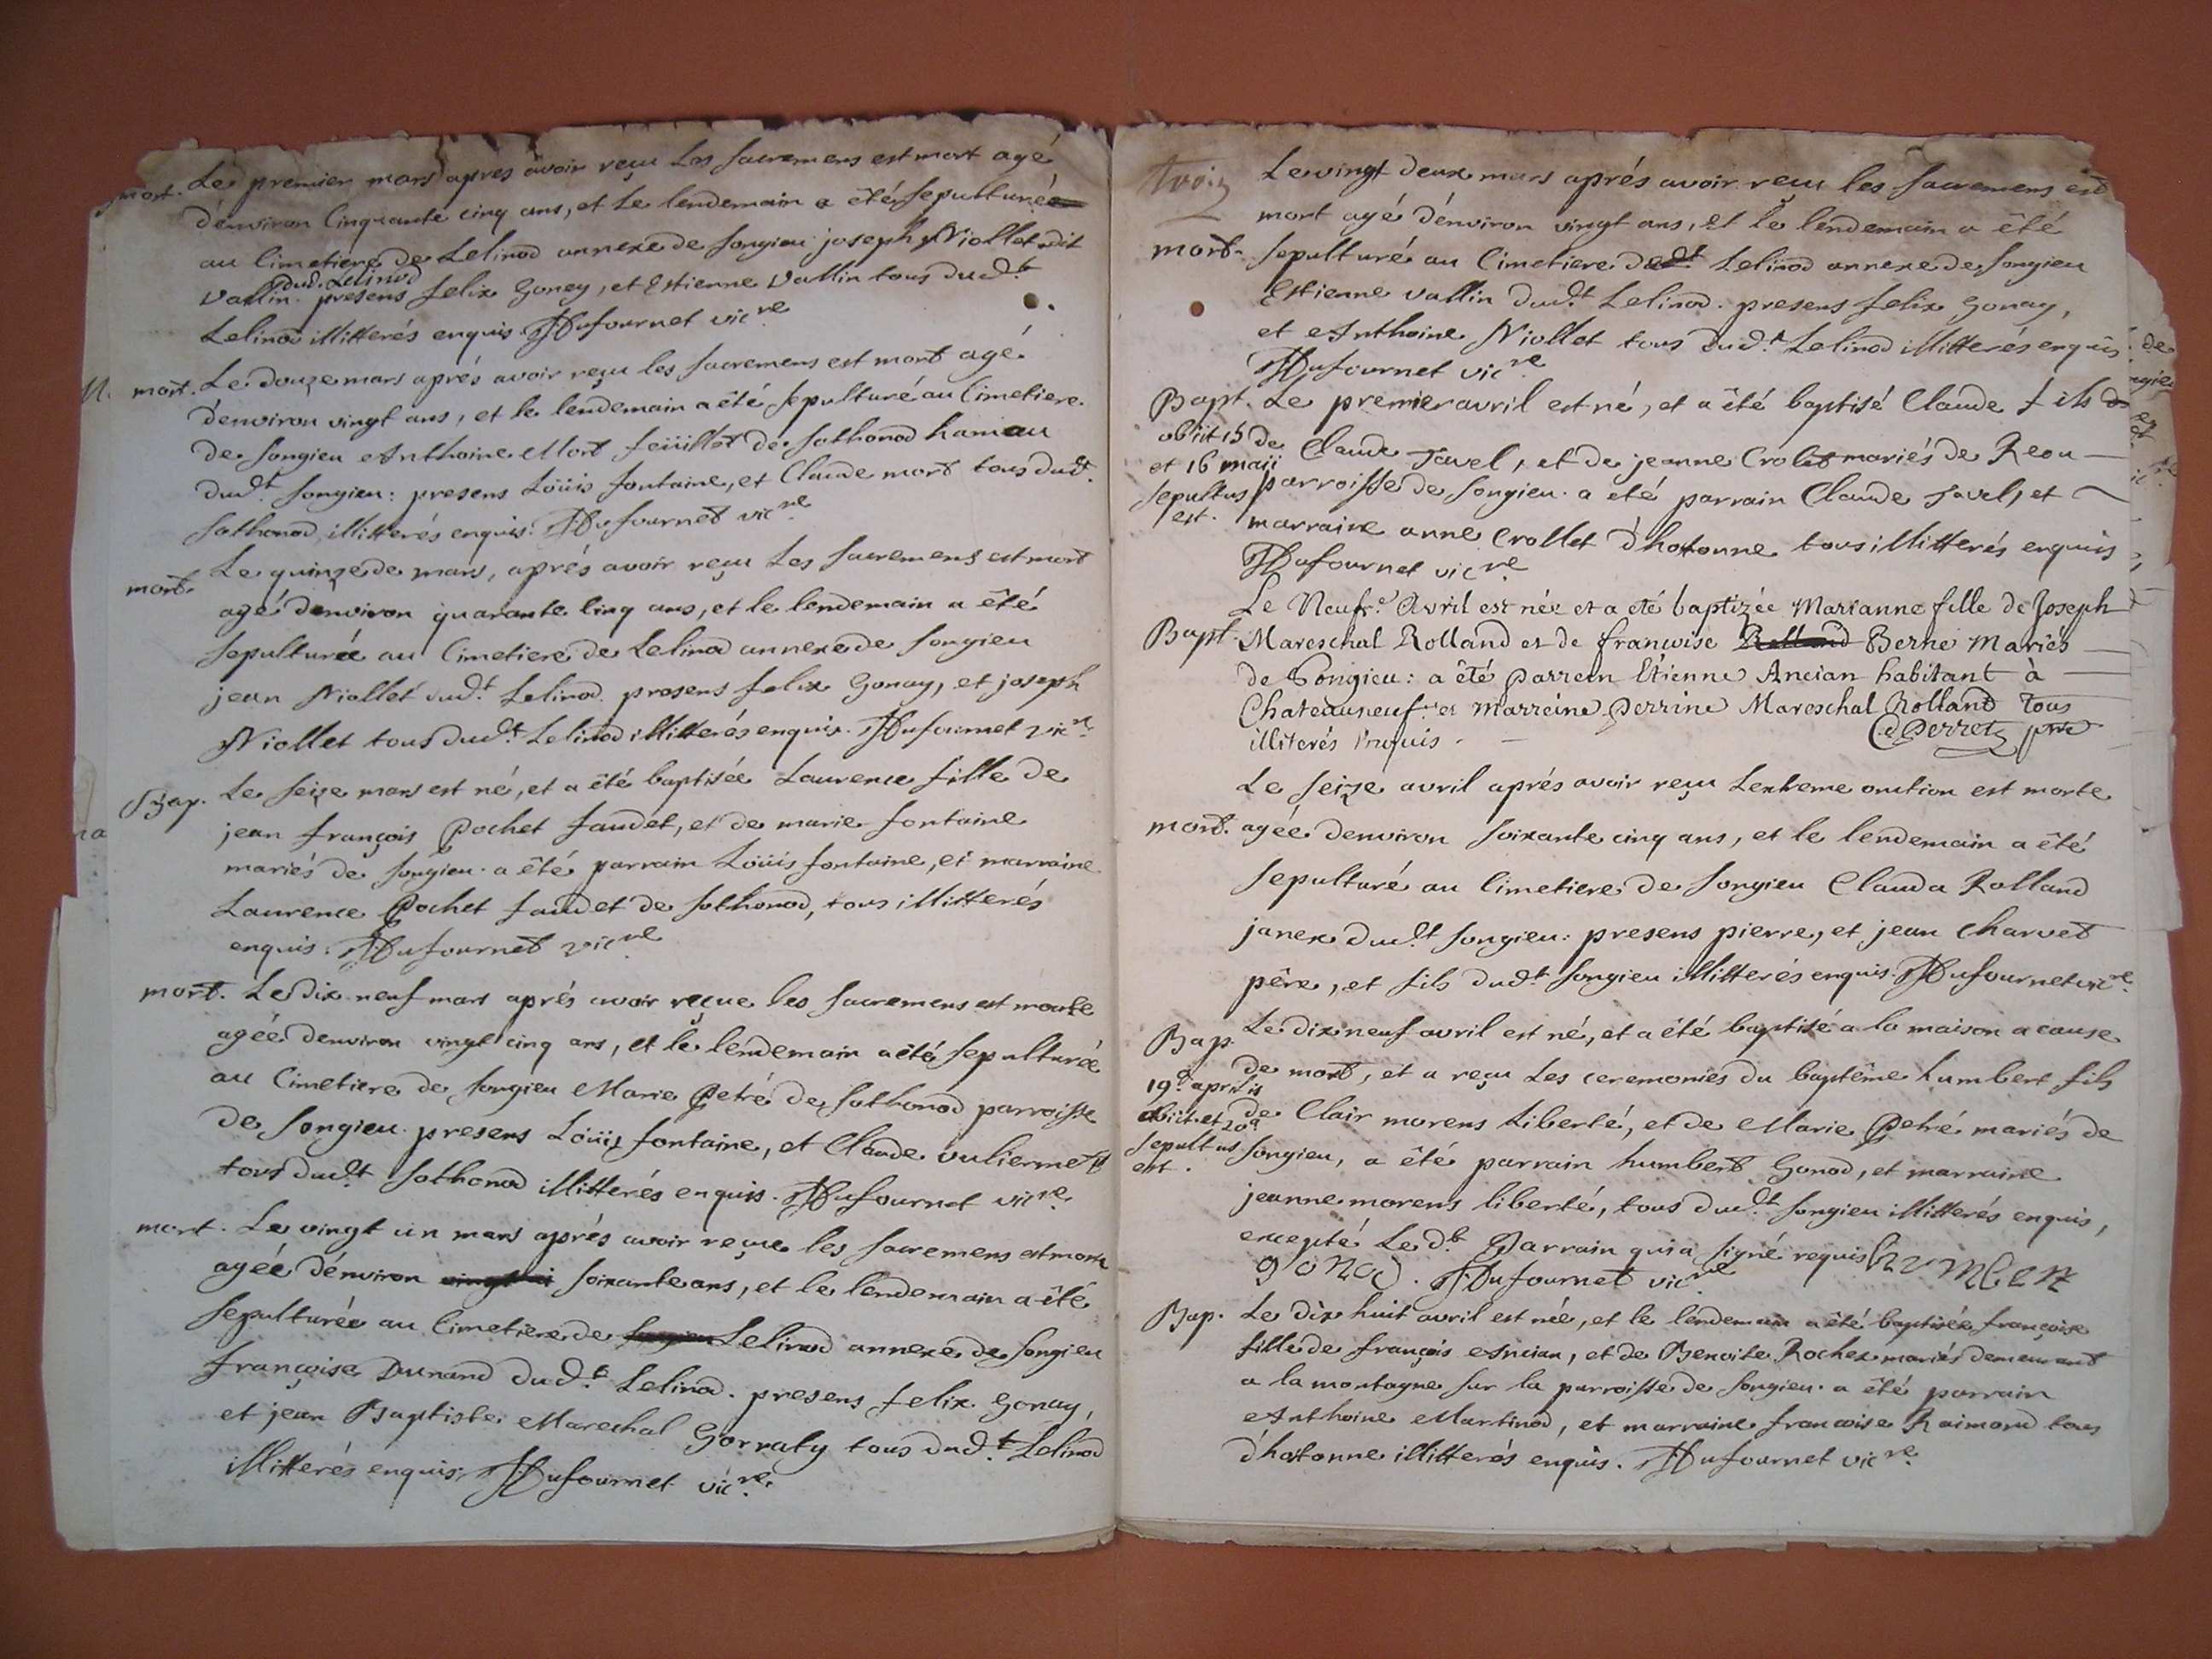 mort. Le premier mars apres avoir reçu Les sacremens est mort agé
d'environ Cinquante cinq ans, et Le lendemain a êté sepulturé
au Cimetiere de Lelinod annexe de songieu joseph Niollet dit
Vallin. dud. Lelinod presens felix Goney, et Estienne Vallin tous dud.t
Lelinod illitterés enquis. Dufournet vic.re
mort. Le douze mars aprés avoir reçu les sacremens est mort agé
d'environ vingt ans, et le lendemain a êté sepulturé au Cimetiere
de songieu Anthoine Mort feüillet de sothonod hameau
dud.t songieu : presens Loüis fontaine, et Claude mort tous dud.t
sothonod, illitterés enquis. Dufournet vic.re
mort. Le quinze de mars, aprés avoir reçu Les sacremens est mort
agé d'environ quarante cinq ans, et le lendemain a êté
sepulturé au Cimetiere de Lelinod annexe de songieu
jean Niollet dud.t Lelinod. presens felix Gonay, et joseph
Niollet tous dud.t Lelinod illitterés enquis. Dufournet vic.re
Bap. Le seize mars est né, et a êté baptisée Laurence fille de
jean françois Pochet faudet, et de marie fontaine
mariés de songieu. a êté parrain Loüis fontaine, et marraine
Laurence Pochet faudet de sothonod, tous illitterés
enquis. Dufournet vic.re
mort. Le dix neuf mars aprés avoir reçue les sacremens est morte
agée denviron vingt cinq ans, et le lendemain a êté sepulturée
au Cimetiere de songieu Marie Petré de sothonod parroisse
de songieu. presens Loüis fontaine, et Claude vuliermet
tous dud.t sothonod illitterés enquis. Dufournet vic.re
mort. Le vingt un mars aprés avoir reçue les sacremens est morte
agée d'environ soixante ans, et le lendemain a êté
sepulturée au Cimetiere de Lelinod annexe de songieu
françoise Dunand dud.t Lelinod. presens felix Gonay,
et jean Baptiste Mareschal Gorraty tous dud.t Lelinod
illitterés enquis. Dufournet vic.re
Le vingt deux mars aprés avoir reçu les sacremens est
mort agé d'environ vingt ans, et le lendemain a êté
mort. sepulturé au Cimetiere de Lelinod annexe de songieu
Estienne vallin dud.t Lelinod. presens felix Gonay,
et Anthoine Niollet tous dud.t Lelinod illitterés enquis
Dufournet vic.re
Bapt. Le premier avril est né, et a êté baptisé Claude fils
obiit 15 et 16 maii sepultus est.
de Claude Javel, et de jeanne Crolet mariés de Reou
parroisse de songieu. a eté parrain Claude Javel, et
marraine anne Crollet d'hotonne tous illitterés enquis
Dufournet vic.re
Le Neuf.e Avril est née et a eté baptizée Marianne fille de Joseph
Bapt. Mareschal Rolland et de françoise Rolland Berne Mariés
de Songieu : a êté Parrein Etienne Ancian habitant à
Chateauneuf et Marreine Perrine Mareschal Rolland Tous
illiterés enquis. C. Perret ptre
Le seize avril aprés avoir reçu Lextreme onction est morte
mort. agée denviron soixante cinq ans, et le lendemain a êté
sepulturé au Cimetiere de songieu Clauda Rolland
janex dud.t songieu : presens pierre, et jean Charvet
pêre, et fils dud.t songieu illitterés enquis. Dufournet vic.re
Bap. Le dix neuf avril est né, et a êté baptisé a la maison a cause
de mort, et a reçu Les ceremonies du baptême humbert fils
19.a aprilis obiit et 20.a sepultus est.
de Clair morens Liberté, et de Marie Petré mariés de
songieu, a êté parrain humbert Gonod, et marraine
jeanne morens liberté, tous dud.t songieu illitterés enquis,
excepté Le d.t Parrain qui a signé requis humbert
gonod. Dufournet vic.re
Bap. Le dix huit avril est née, et le lendemain a êté baptisée françoise
fille de françois Ancian, et de Benoite Rochex mariés demeurant
a la montagne sur la parroisse de songieu. a êté parrain
Anthoine Martinod, et marraine francoise Raimond tous
d'hotonne illitterés enquis. Dufournet vic.re